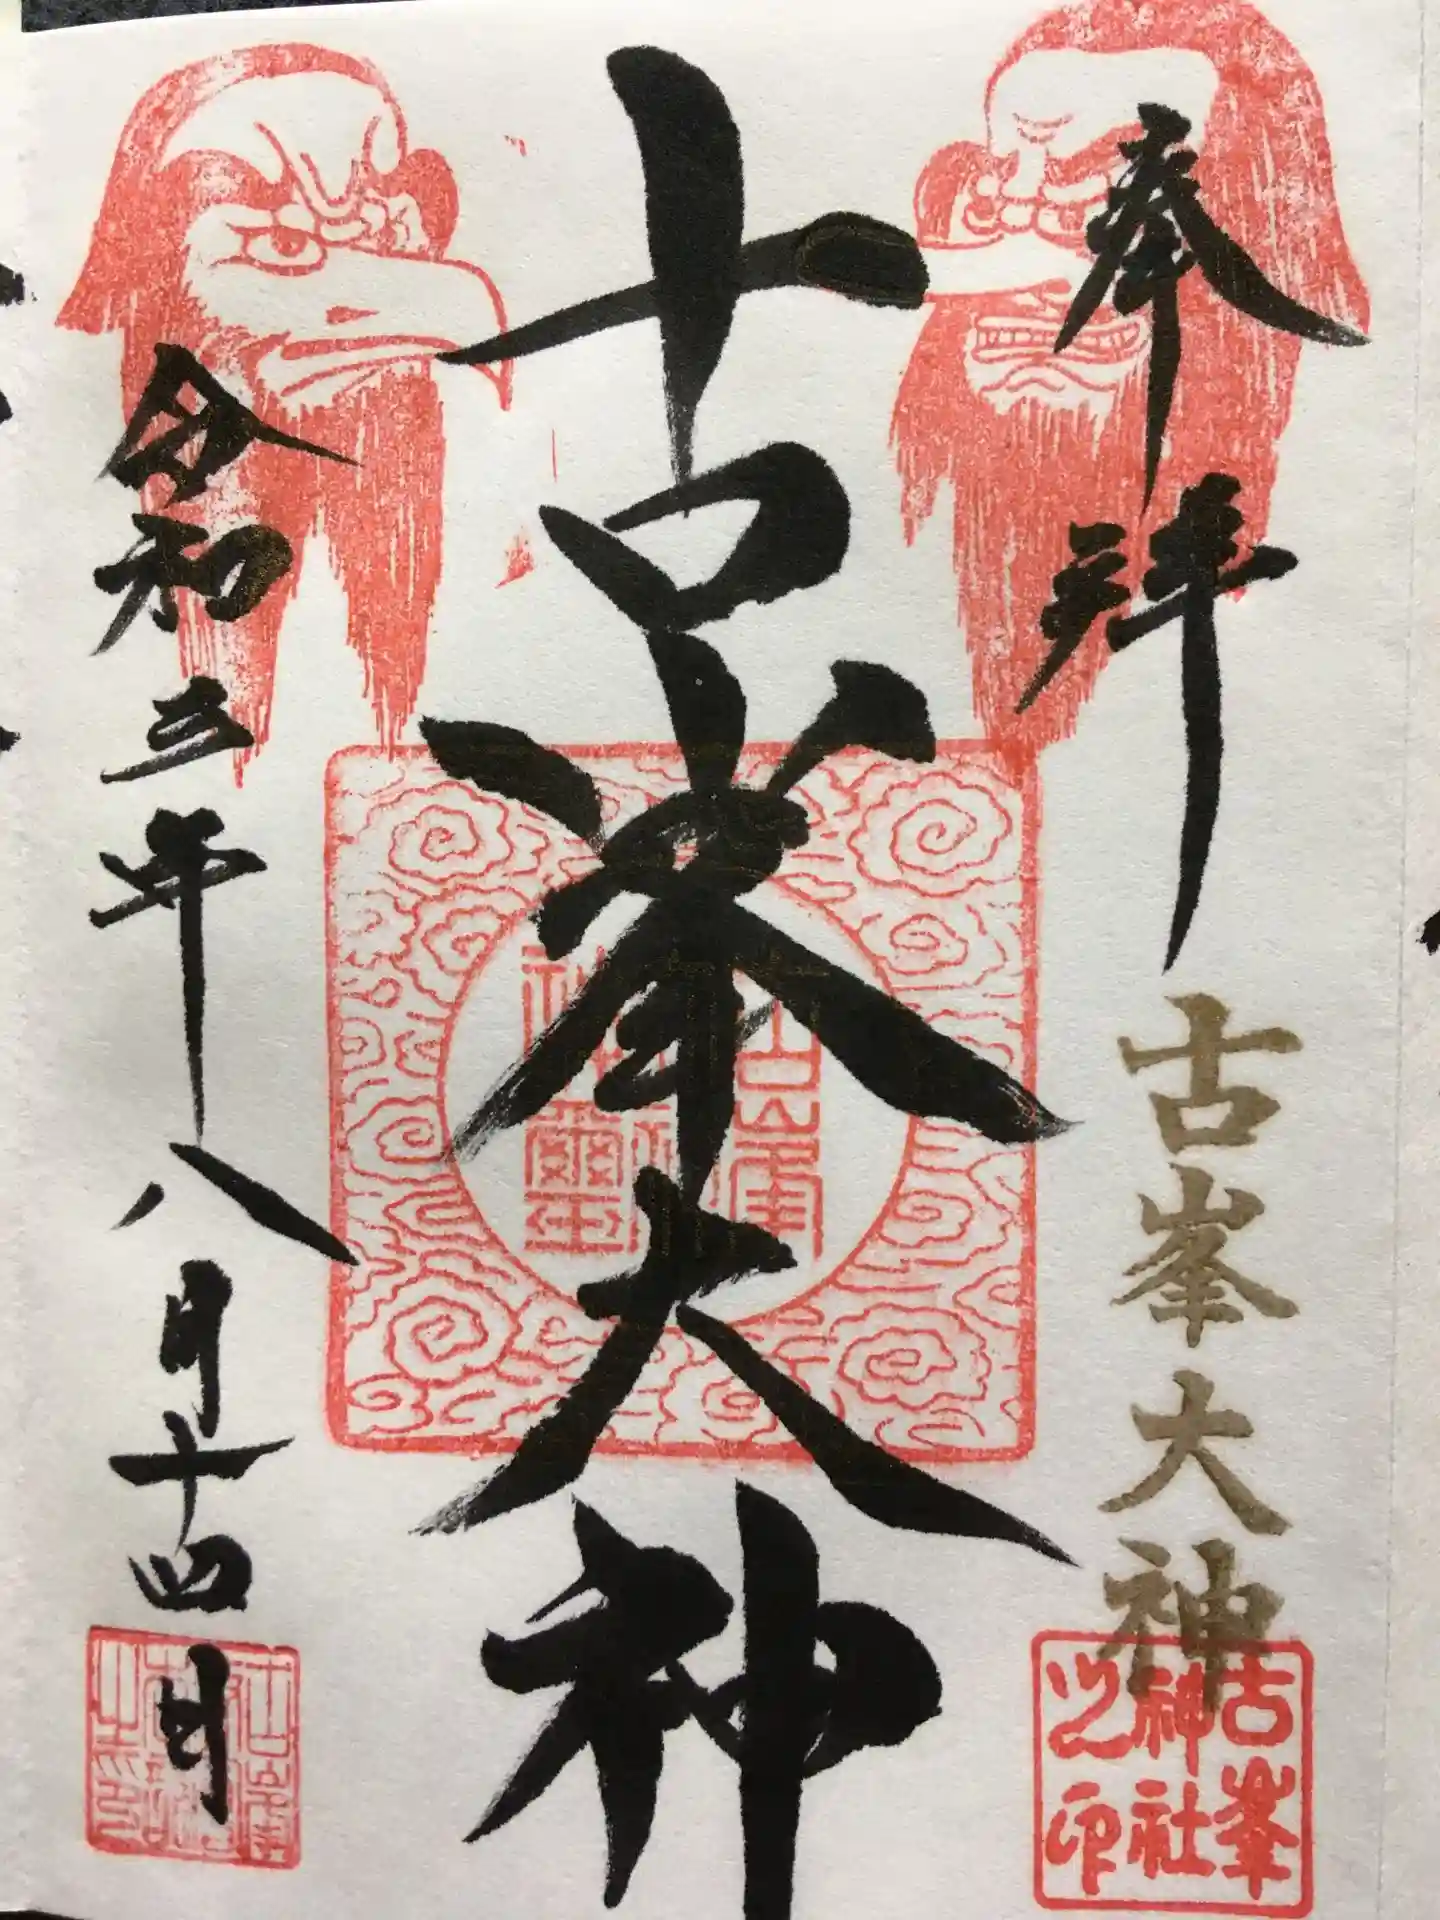 奉拝
古峯大神
古峯神社之印
古峯大神
令和三年八月十四日